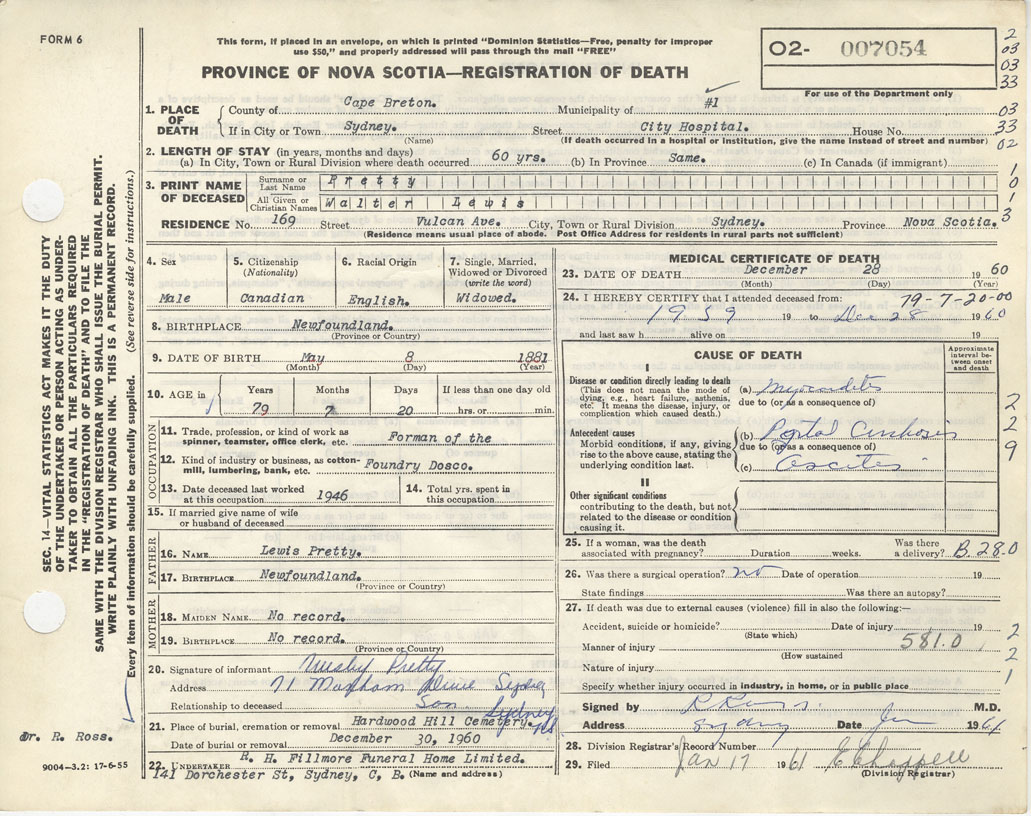 FORM 6
This form, if placed in an envelope, on which is printed "Dominion Statistics—Free, penalty for improper
use $50," and properly addressed will pass through the mail "FREE"
PROVINCE OF NOVA SCOTIA—REGISTRATION OF DEATH
02- 007054
For use of the Department only
2
03
03
33
03
33
02
1
0
1
3
1. PLACE OF DEATH
County of Cape Breton. Municipality of #1
If in City or Town Sydney. Street City Hospital. House No.
(Name) (If death occurred in a hospital or institution, give the name instead of street and number)
2. LENGTH OF STAY (in years, months and days)
(a) In City, Town or Rural Division where death occurred 60 yrs. (b) In Province Same. (c) In Canada (if immigrant)
3. PRINT NAME OF DECEASED
Surname or Last Name Pretty
All Given or Christian Names Walter Lewis
RESIDENCE No. 169 Street Vulcan Ave. City, Town or Rural Division Sydney. Province Nova Scotia.
(Residence means usual place of abode. Post Office Address for residents in rural parts not sufficient)
4. Sex
Male
5. Citizenship
(Nationality)
Canadian
6. Racial Origin
English.
7. Single, Married,
Widowed or Divorced
(write the word)
Widowed.
8. BIRTHPLACE Newfoundland.
(Province or Country)
9. DATE OF BIRTH May 8 1881
(Month) (Day) (Year)
10. AGE in
Years Months Days If less than one day old
79 7 20 hrs. or min.
OCCUPATION
11. Trade, profession, or kind of work as
spinner, teamster, office clerk, etc. Forman of the
12. Kind of industry or business, as cotton-
mill, lumbering, bank, etc. Foundry Dosco.
13. Date deceased last worked
at this occupation 1946
14. Total yrs. spent in
this occupation
15. If married give name of wife
or husband of deceased
FATHER
16. NAME Lewis Pretty.
17. BIRTHPLACE Newfoundland.
(Province or Country)
MOTHER
18. MAIDEN NAME No record.
19. BIRTHPLACE No record.
(Province or Country)
20. Signature of informant Pretty
Address 71 Drive Sydney
Relationship to deceased Son Sydney
NS
21. Place of burial, cremation or removal Hardwood Hill Cemetery.
Date of burial or removal December 30, 1960
22. UNDERTAKER R. H. Fillmore Funeral Home Limited.
141 Dorchester St, Sydney, C, B. (Name and address)
MEDICAL CERTIFICATE OF DEATH
23. DATE OF DEATH December 28 1960
(Month) (Day) (Year)
24. I HEREBY CERTIFY that I attended deceased from: 79-7-20-00
1959 19 to Dec 28 1960
and last saw h alive on 19
CAUSE OF DEATH
Approximate
interval be-
tween onset
and death
I
Disease or condition directly leading to death
(This does not mean the mode of
dying, e.g., heart failure, asthenia,
etc. It means the disease, injury, or
complication which caused death.)
(a) Myocarditis
due to (or as a consequence of)
Antecedent causes
Morbid conditions, if any, giving
rise to the above cause, stating the
underlying condition last.
(b) Portal Cirrhosis
due to (or as a consequence of)
(c) Ascites
II
Other significant conditions
contributing to the death, but not
related to the disease or condition
causing it.
2
2
9
25. If a woman, was the death
associated with pregnancy? Duration weeks. Was there
a delivery? B. 28.0
26. Was there a surgical operation? no Date of operation 19
State findings Was there an autopsy?
27. If death was due to external causes (violence) fill in also the following:—
Accident, suicide or homicide? Date of injury 19
(State which)
Manner of injury 581.0
(How sustained
Nature of injury
2
2
1
Specify whether injury occurred in industry, in home, or in public place
Signed by M.D.
Address Sydney Date Jan 1961
28. Division Registrar's Record Number
29. Filed Jan 17 1961 E Chappell
(Division Registrar)
SEC. 14—VITAL STATISTICS ACT MAKES IT THE DUTY
OF THE UNDERTAKER OR PERSON ACTING AS UNDER-
TAKER TO OBTAIN ALL THE PARTICULARS REQUIRED
IN THE "REGISTRATION OF DEATH" AND TO FILE THE
SAME WITH THE DIVISION REGISTRAR WHO SHALL ISSUE THE BURIAL PERMIT.
WRITE PLAINLY WITH UNFADING INK. THIS IS A PERMANENT RECORD.
Every item of information should be carefully supplied. (See reverse side for instructions.)
Dr. R. Ross.
9004—3.2: 17-6-55